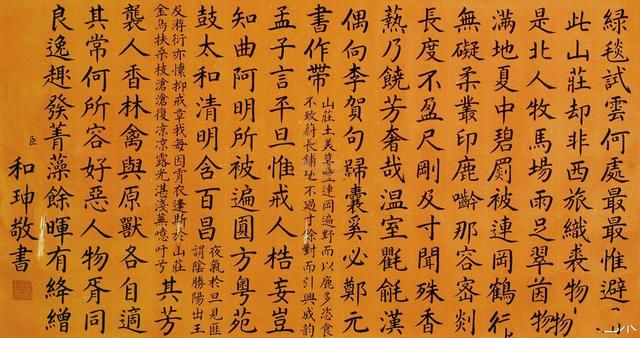 綠毯試雲何處最最惟避
此山莊却非西旅織裘物
是北人牧馬場雨足翠茵
滿地夏中碧罽被連岡鶴行
無礙柔叢印鹿齡那容密剡
長度不盈尺剛及寸聞殊香
爇乃饒芳奢哉溫室氍毹漢
偶向李賀句歸囊奚必鄭元
書作帶
山莊土美草豐連岡遍野而以鹿多恣食
不致蔚長鋪地不過寸餘對而引興成韻
孟子言平旦惟戒人梏妄豈
知曲阿明所被遍圓方粵苑
鼓太和清明含百昌
夜氣於旦見匪
謂陰勝陽出王
及游衍亦懍抑戒章我每因宵衣逢斯於山莊
金烏扶桑枝滄滄復涼涼露光湛淺蕪噫吁兮
其芳
襲人香林禽與原獸各自適
其常何所容好惡人物胥同
良逸趣發菁藻餘暉有絳繒
臣和珅敬書